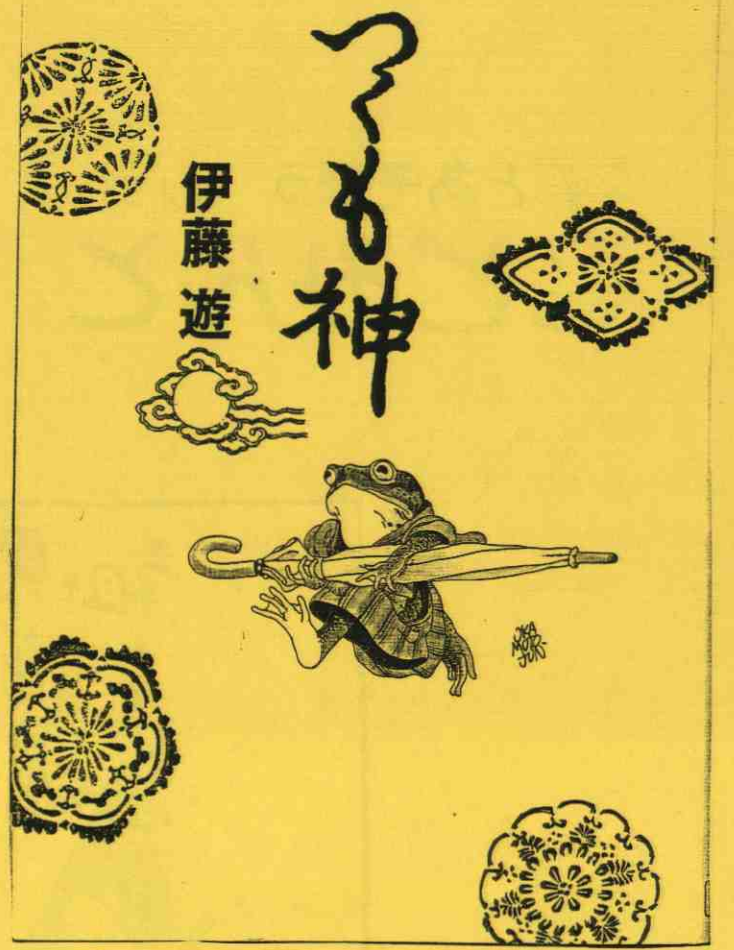 つくも神
伊藤 遊
OKA
MOTO
JUN-